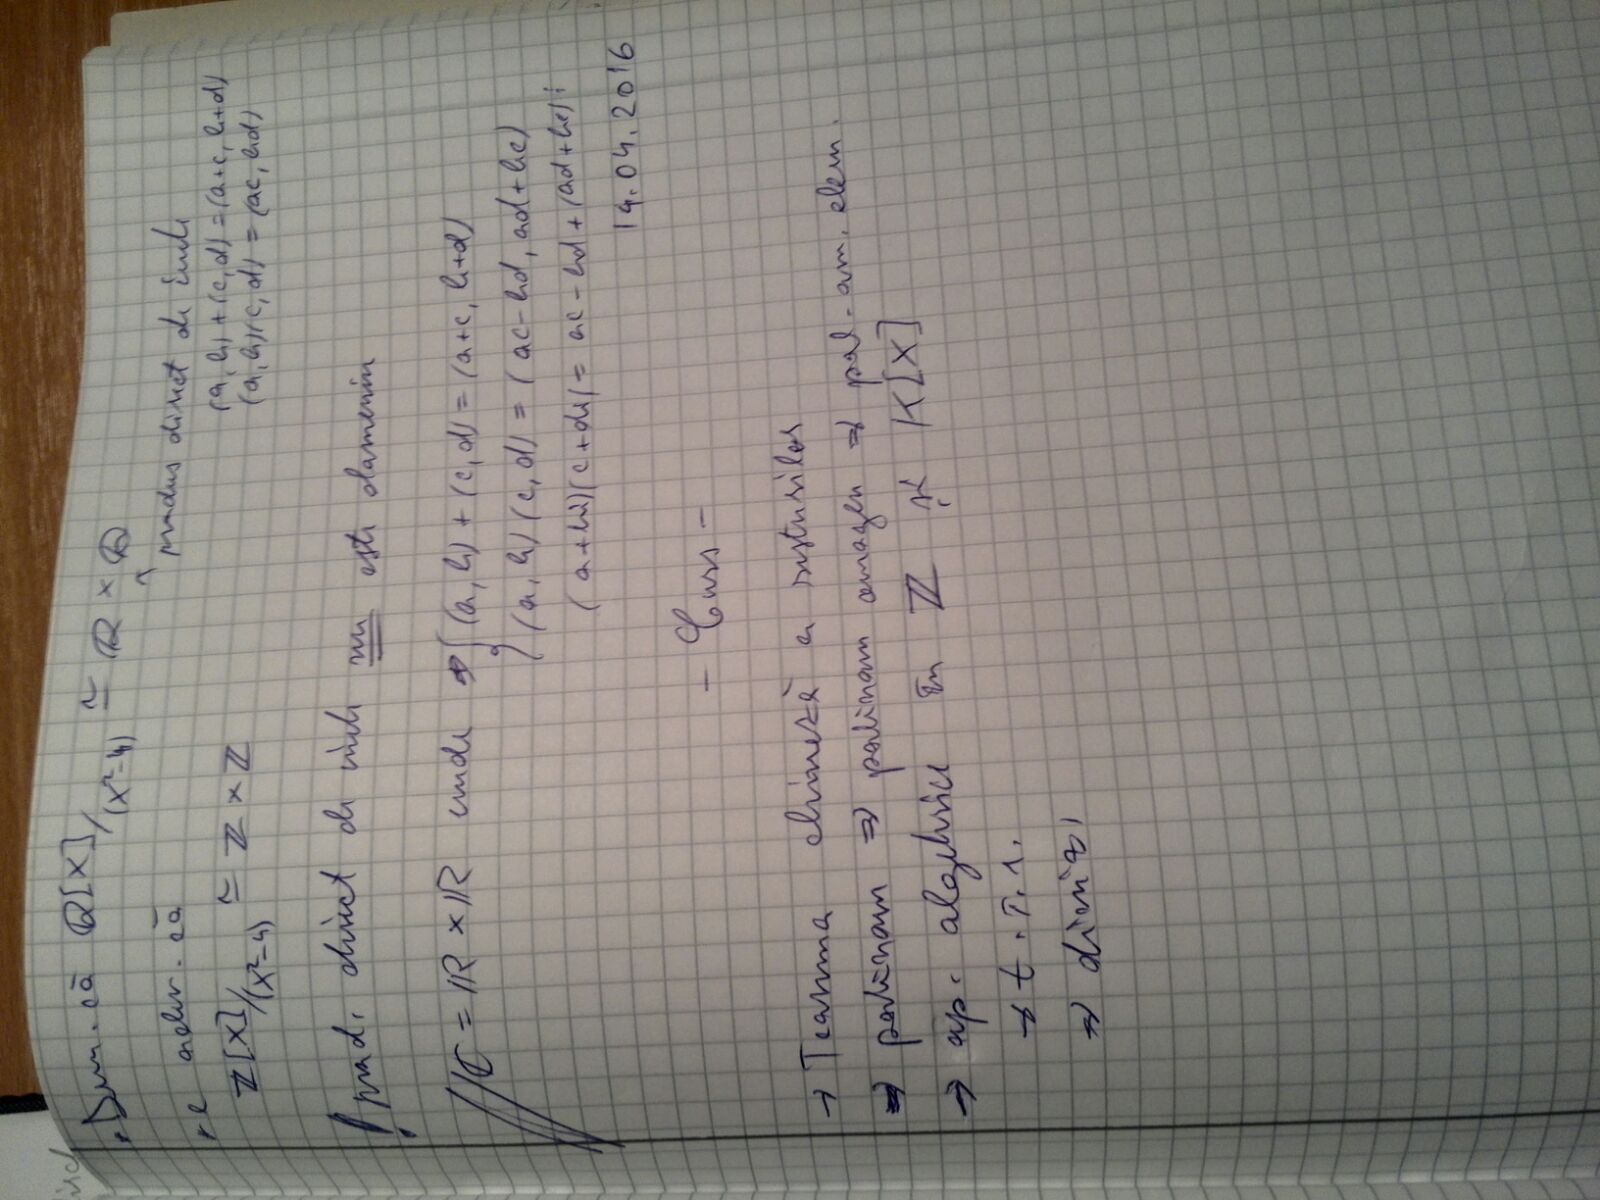 . Dem. că Q[X]/(X²-4) ≃ Q × Q
produs direct de inele
(a, b) + (c, d) = (a+c, b+d)
(a, b)(c, d) = (ac, bd)
. e adev. că
Z[X]/(X²-4) ≃ Z × Z
! prod. direct de inele nu este domeniu
C = R × R unde { (a, b) + (c, d) = (a+c, b+d)
(a, b)(c, d) = (ac-bd, ad+bc)
(a+bi)(c+di) = ac-bd + (ad+bc)i
19.04.2016
- Curs -
→ Teorema chineză a resturilor
⇒ polinom ⇒ polinom omogen ⇒ pol. om. elem.
→ ap. algebrice în Z și K[X]
→ t. î. r.